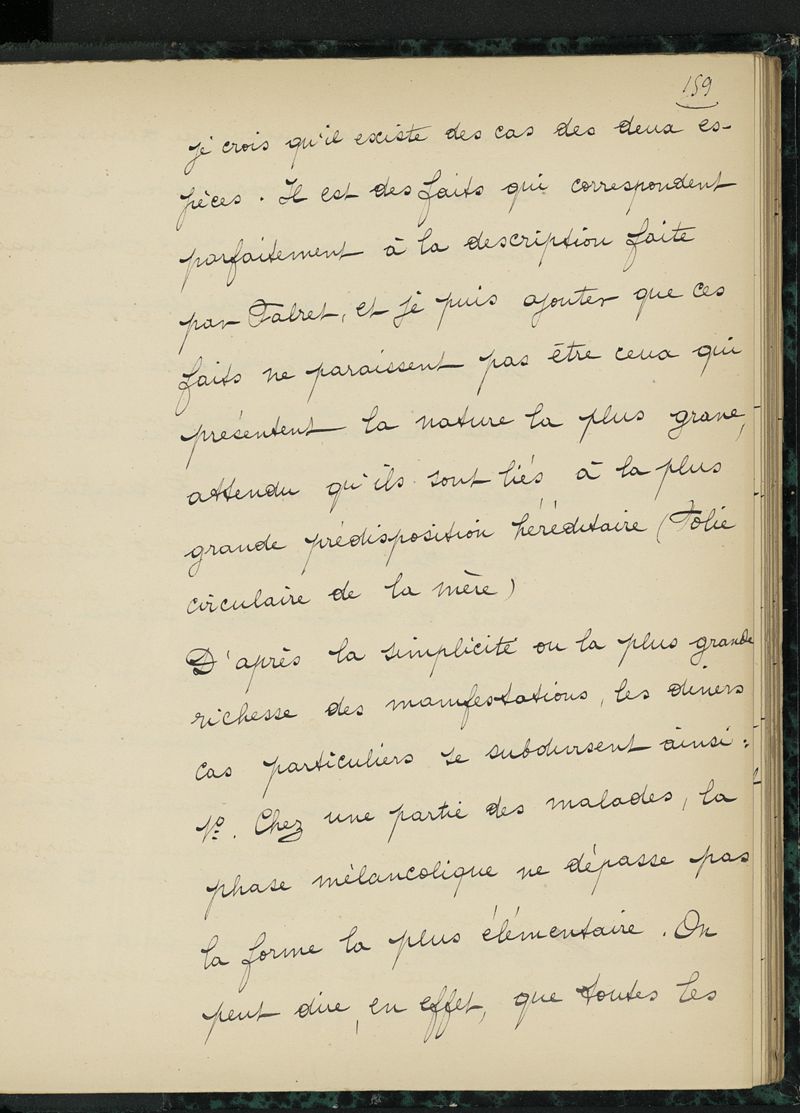 159
je crois qu'il existe des cas des deux es-
pèces. Il est des faits qui correspondent
parfaitement à la description faite
par Falret, et je puis ajouter que ces
faits ne paraissent pas être ceux qui
présentent la nature la plus grave,
attendu qu'ils sont liés à la plus
grande prédisposition héréditaire (Folie
circulaire de la mère)
D'après la simplicité ou la plus grande
richesse des manifestations, les divers
cas particuliers se subdivisent ainsi :
1º. Chez une partie des malades, la
phase mélancolique ne dépasse pas
la forme la plus élémentaire. On
peut dire, en effet, que toutes les